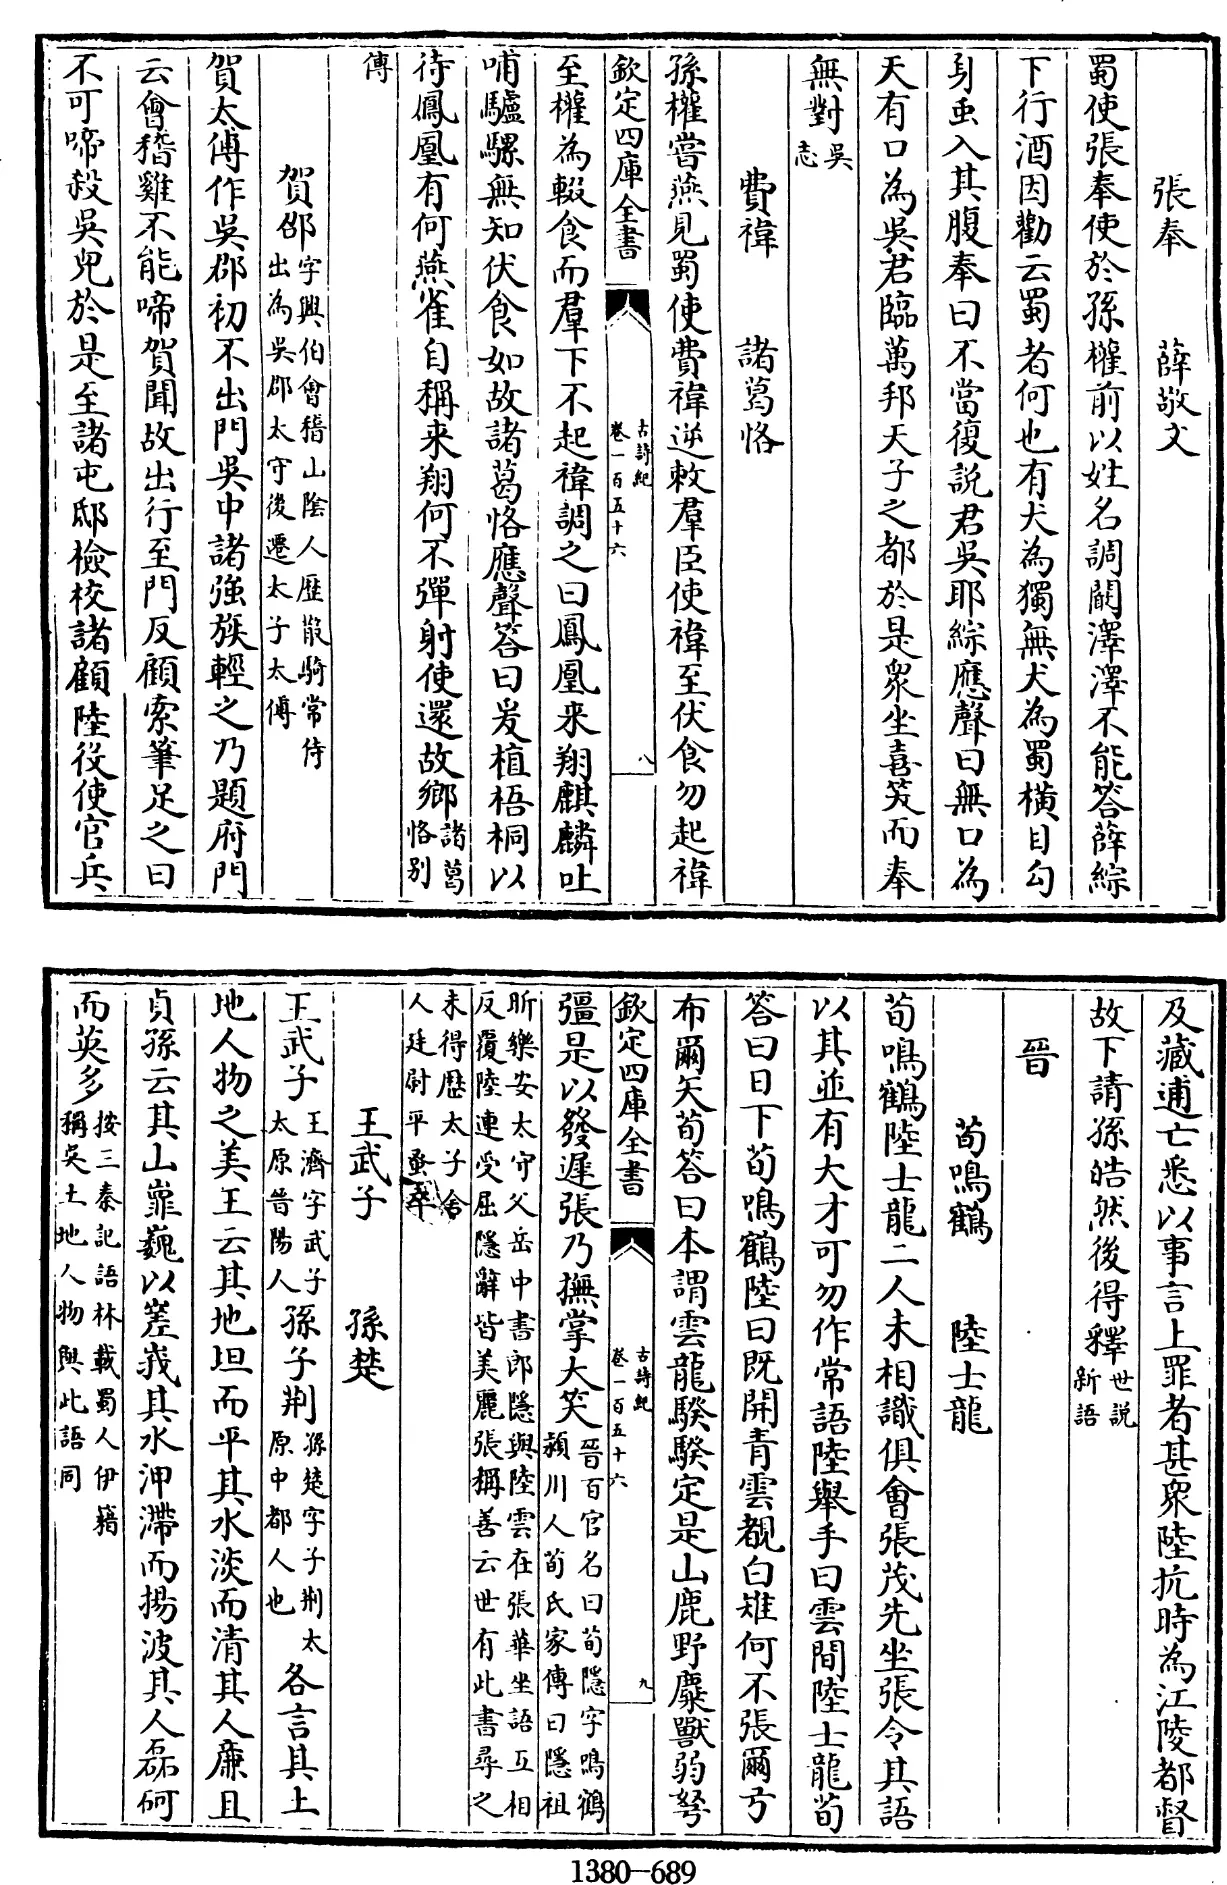 張奉　薛敬文
蜀使張奉使於孫權前以姓名調闞澤澤不能答薛綜
下行酒因勸云蜀者何也有犬為獨無犬為蜀橫目勾
身虫入其腹奉曰不當復説君吳耶綜應聲曰無口為
天有口為吳君臨萬邦天子之都於是衆坐喜笑而奉
無對吳志
費禕　諸葛恪
孫權嘗燕見蜀使費禕逆敕羣臣使禕至伏食勿起禕
欽定四庫全書　古詩紀卷一百五十六　八
至權為輟食而羣下不起禕調之曰鳳凰来翔麒麟吐
哺驢騾無知伏食如故諸葛恪應聲答曰爰植梧桐以
待鳳凰有何燕雀自稱来翔何不彈射使還故鄉諸葛恪别
傳
賀邵字興伯會稽山陰人歴散騎常侍出為吳郡太守後遷太子太傅
賀太傅作吳郡初不出門吳中諸強族輕之乃題府門
云會稽雞不能啼賀聞故出行至門反顧索筆足之曰
不可啼殺吳兒於是至諸屯邸檢校諸顧陸役使官兵
及藏逋亡悉以事言上罪者甚衆陸抗時為江陵都督
故下請孫皓然後得釋世説新語
晉
荀鳴鶴　陸士龍
荀鳴鶴陸士龍二人未相識俱會張茂先坐張令其語
以其並有大才可勿作常語陸舉手曰雲間陸士龍荀
答曰日下荀鳴鶴陸曰既開青雲覩白雉何不張爾弓
布爾矢荀答曰本謂雲龍騤騤定是山鹿野麋獸弱弩
欽定四庫全書　古詩紀卷一百五十六　九
彊是以發遲張乃撫掌大笑晉百官名曰荀隱字鳴鶴潁川人荀氏家傳曰隱祖
昕樂安太守父岳中書郎隱與陸雲在張華坐語互相反覆陸連受屈隱辭皆美麗張稱善云世有此書尋之
未得歴太子舍人廷尉平蚤卒
王武子　孫楚
王武子王濟字武子太原晉陽人孫子荆孫楚字子荆太原中都人也各言其土
地人物之美王云其地坦而平其水淡而清其人廉且
貞孫云其山嶵巍以嵳峩其水㳌渫而揚波其人磊砢
而英多按三秦記語林載蜀人伊籍稱吳土地人物與此語同
1380—689